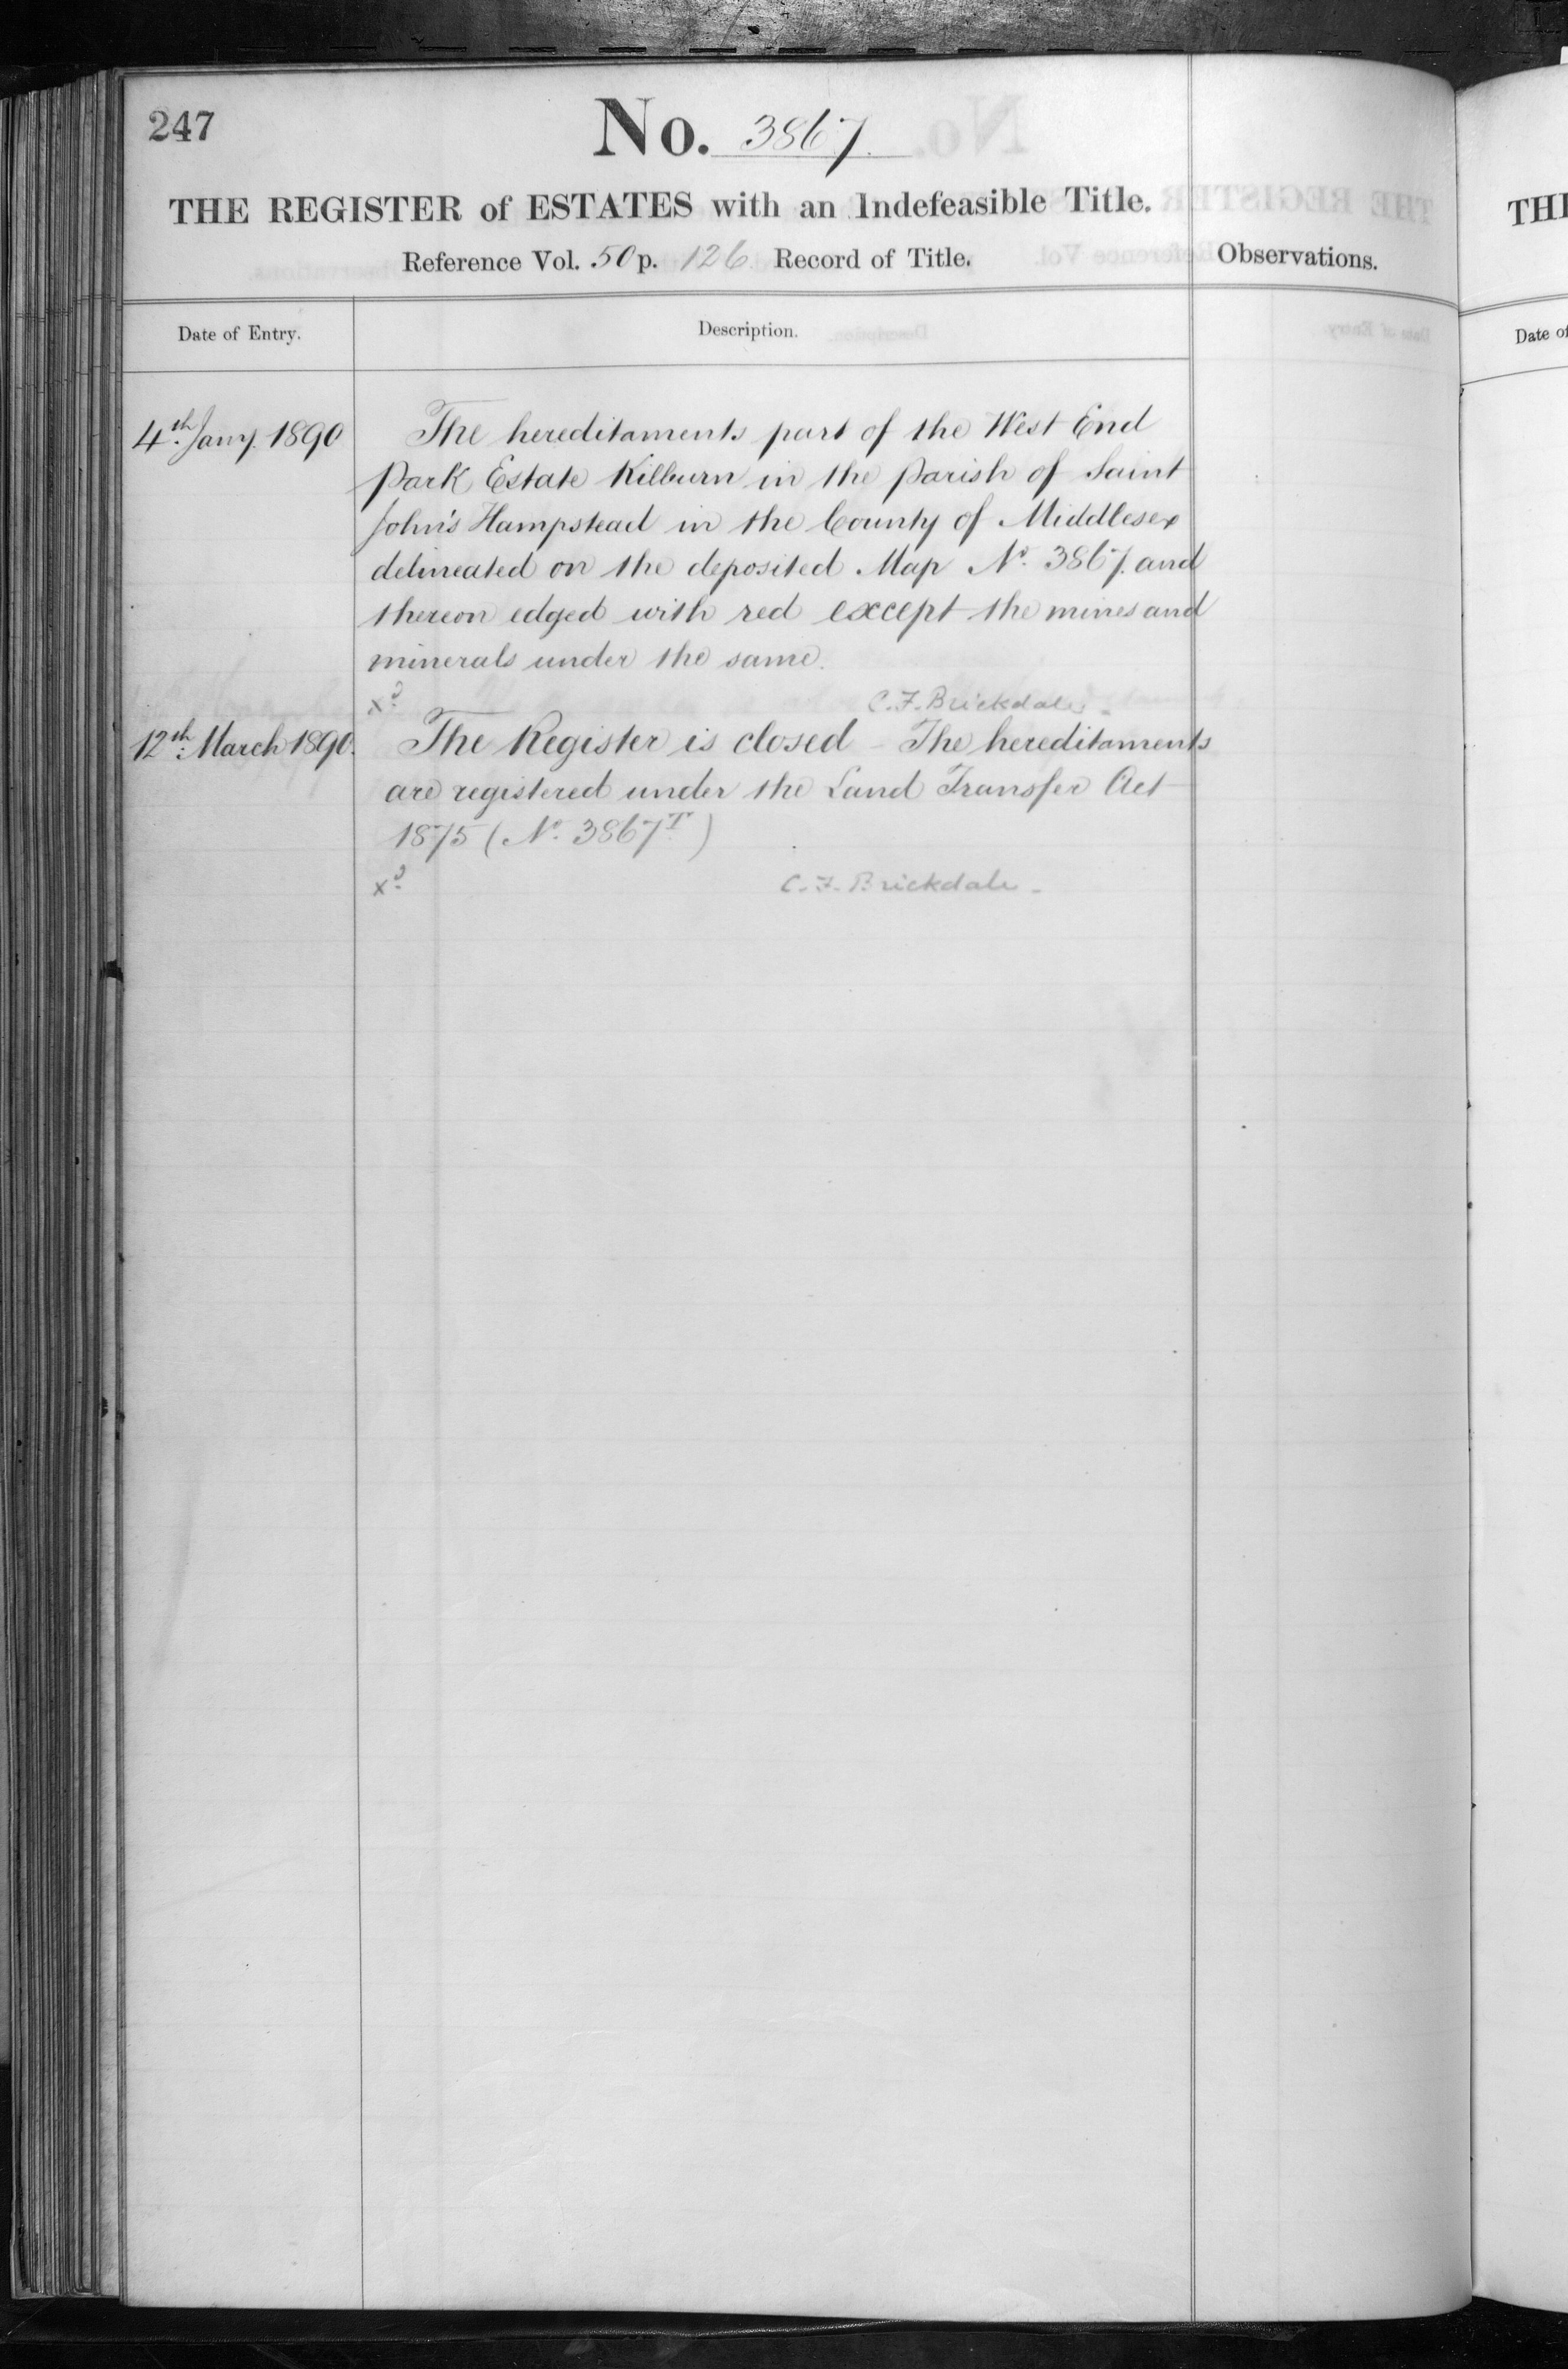 247
No. 3867.
THE REGISTER of ESTATES with an Indefeasible Title.
Reference Vol. 50 p. 126 Record of Title.
Observations.
Date of Entry.
Description.
4th Jany. 1890
The hereditaments part of the West End
Park Estate Kilburn in the parish of Saint
John's Hampstead in the County of Middlesex
delineated on the deposited Map No. 3867 and
thereon edged with red except the mines and
minerals under the same.
xd
C. F. Brickdale.
12th March 1890.
The Register is closed - The hereditaments
are registered under the Land Transfer Act
1875 (No. 3867T)
xd
C. F. Brickdale.
TH
Date of